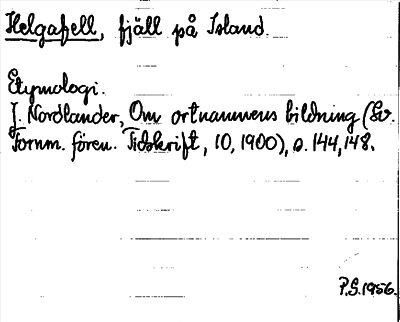 Helgafell, fjäll på Island.
Etymologi.
J. Nordlander, Om ortnamnens bildning (Sv.
Fornm. fören. Tidskrift, 10, 1900), s. 144, 148.
P.S. 1956.